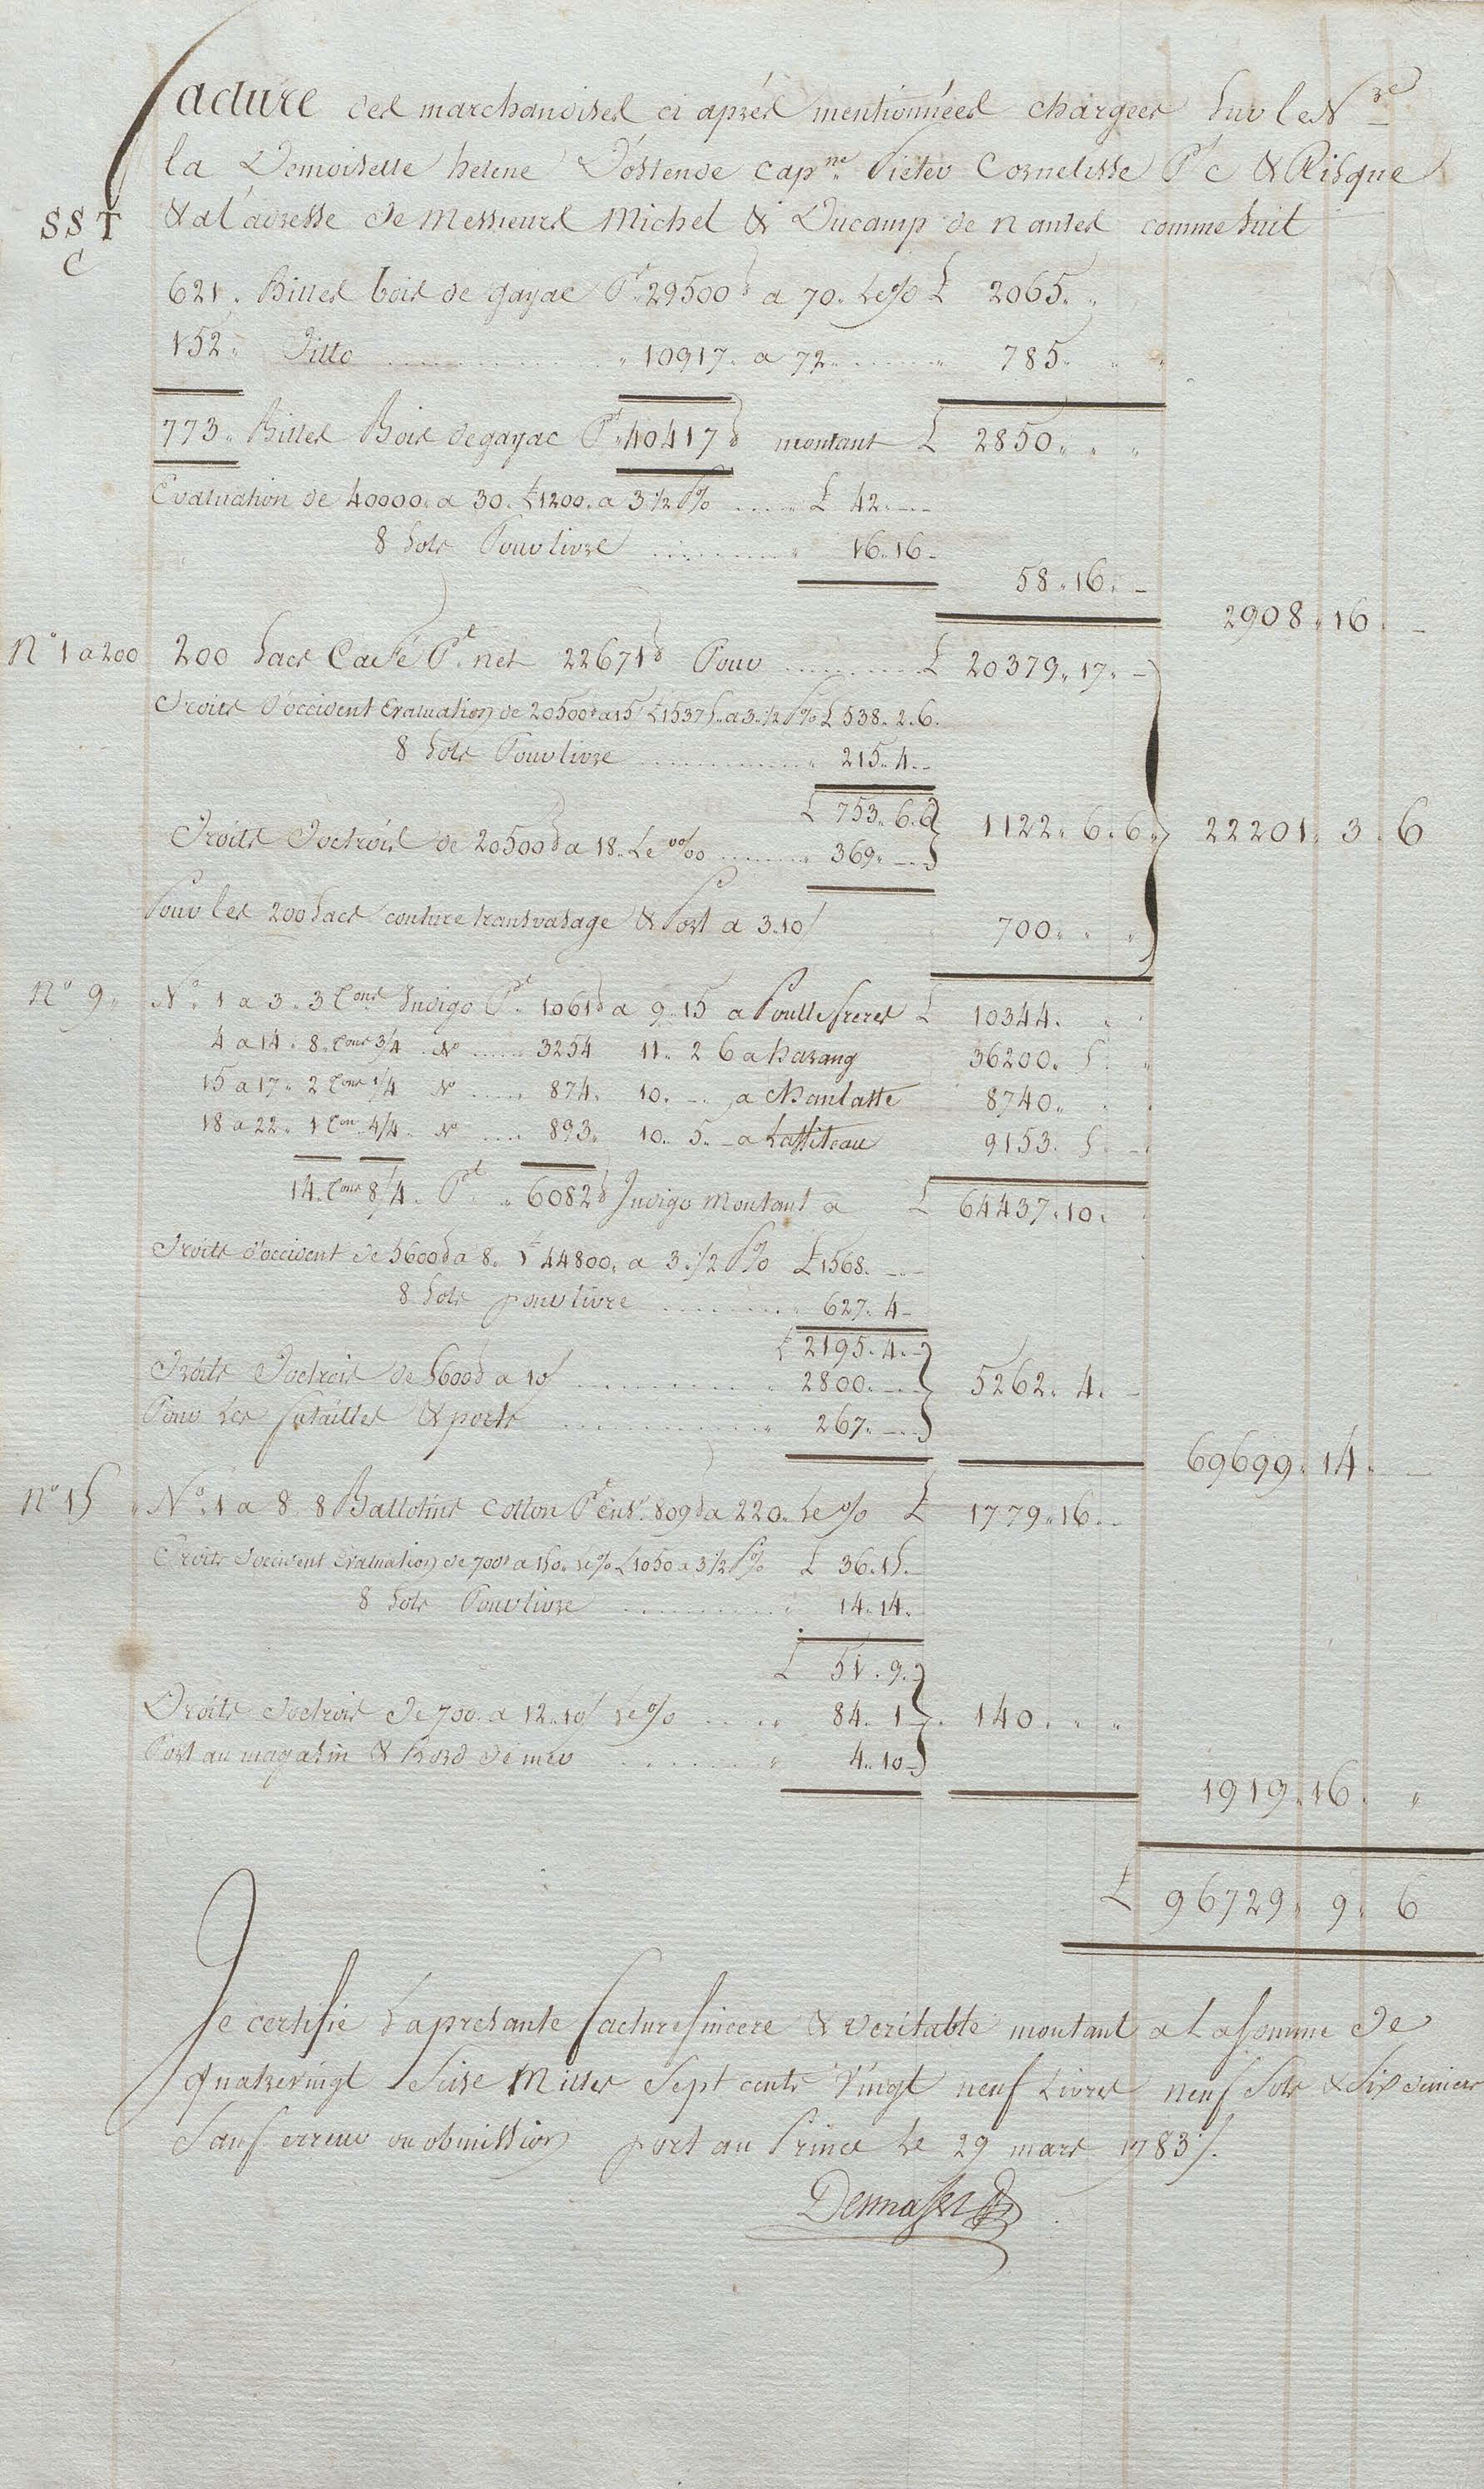 Facture des marchandises ci aprés mentionnées chargees sur le N.re
la Demoiselle helene D'ostende cap.ne Pieter Cornelisse P.r C & Risque
SST & a l'adresse de Messieurs Michel & Ducamp de nantes comme suit
C
621. Billes bois de gayac P.t 29500 lb a 70. Le % £ 2065. "
152. Ditto .......... " 10917. a 72. ...... " 785. " "
773. Billes Bois de gayac P.t 40417 lb montant £ 2850. " "
Evaluation de 40000. a 30. £ 1200. a 3 1/2 P% .... £ 42. --
8 Sols Pour livre .......... " 16. 16 -
58. 16. -
2908. 16. -
N.o 1 a 200 200 Sacs Café P.t net 22671 lb Pour .......... £ 20379. 17. -
Droits D'occident Evaluation de 20500 lb a 15 s £ 15375. a 3. 1/2 P% £ 538. 2. 6.
8 Sols Pour livre .......... " 215. 4. -
£ 753. 6. 6 1122. 6. 6. 22201. 3. 6
Droits D'octrois de 20500 lb a 18. Le %o ........ " 369. --
Pour les 200 Sacs couture transvasage & Port a 3. 10 s 700. " "
N.o 9. N.o 1 a 3. 3 C.ons Indigo P.t 1061 lb a 9. 15 a Poulle freres £ 10344. " "
4 a 14. 8. C.ons 3/4 N.o ...... 3254 11. 2 6 a harang 36200. 5. "
15 a 17. 2 C.ons 1/4 N.o ...... 874. 10. -- a Chanlatte 8740. " "
18 a 22. 1 C.on 4/4. N.o ..... 893. 10. 5. - a Lafiteau 9153. 5. -
14. C.ons 8/4. P.t " 6082 lb Indigo Montant a £ 64437. 10. "
Droits d'occident de 5600 lb a 8. £ 44800. a 3. 1/2 P% £ 1568. --
8 Sols pour livre .......... " 627. 4 -
£ 2195. 4. -
Droits D'octrois de 5600 lb a 10 s .......... " 2800. -- 5262. 4. -
Pour les futailles & ports .......... " 267. --
69699. 14. -
N.o 15 N.o 1 a 8. 8 Ballotins Cotton P.t Ens.e 809 lb a 220. Le % £ 1779. 16. -
Droits D'occident Evaluation de 700 lb a 150. Le % £ 1050 a 3 1/2 P% £ 36. 15. -
8 Sols Pour livre .......... " 14. 14.
£ 51. 9. -
Droits D'octrois de 700. a 12. 10 s Le % ..... " 84. 1 - 140. " "
Port au magasin & Bord de mer .......... " 4. 10 -
1919. 16. "
£ 96729. 9. 6
Je certifie la presante facture sincere & veritable montant a la somme de
quatrevingt Seise Milles Sept cents Vingt neuf Livres neuf Sols & Six deniers
Sauf erreur ou obmission port au Prince Le 29 mars 1783 /.